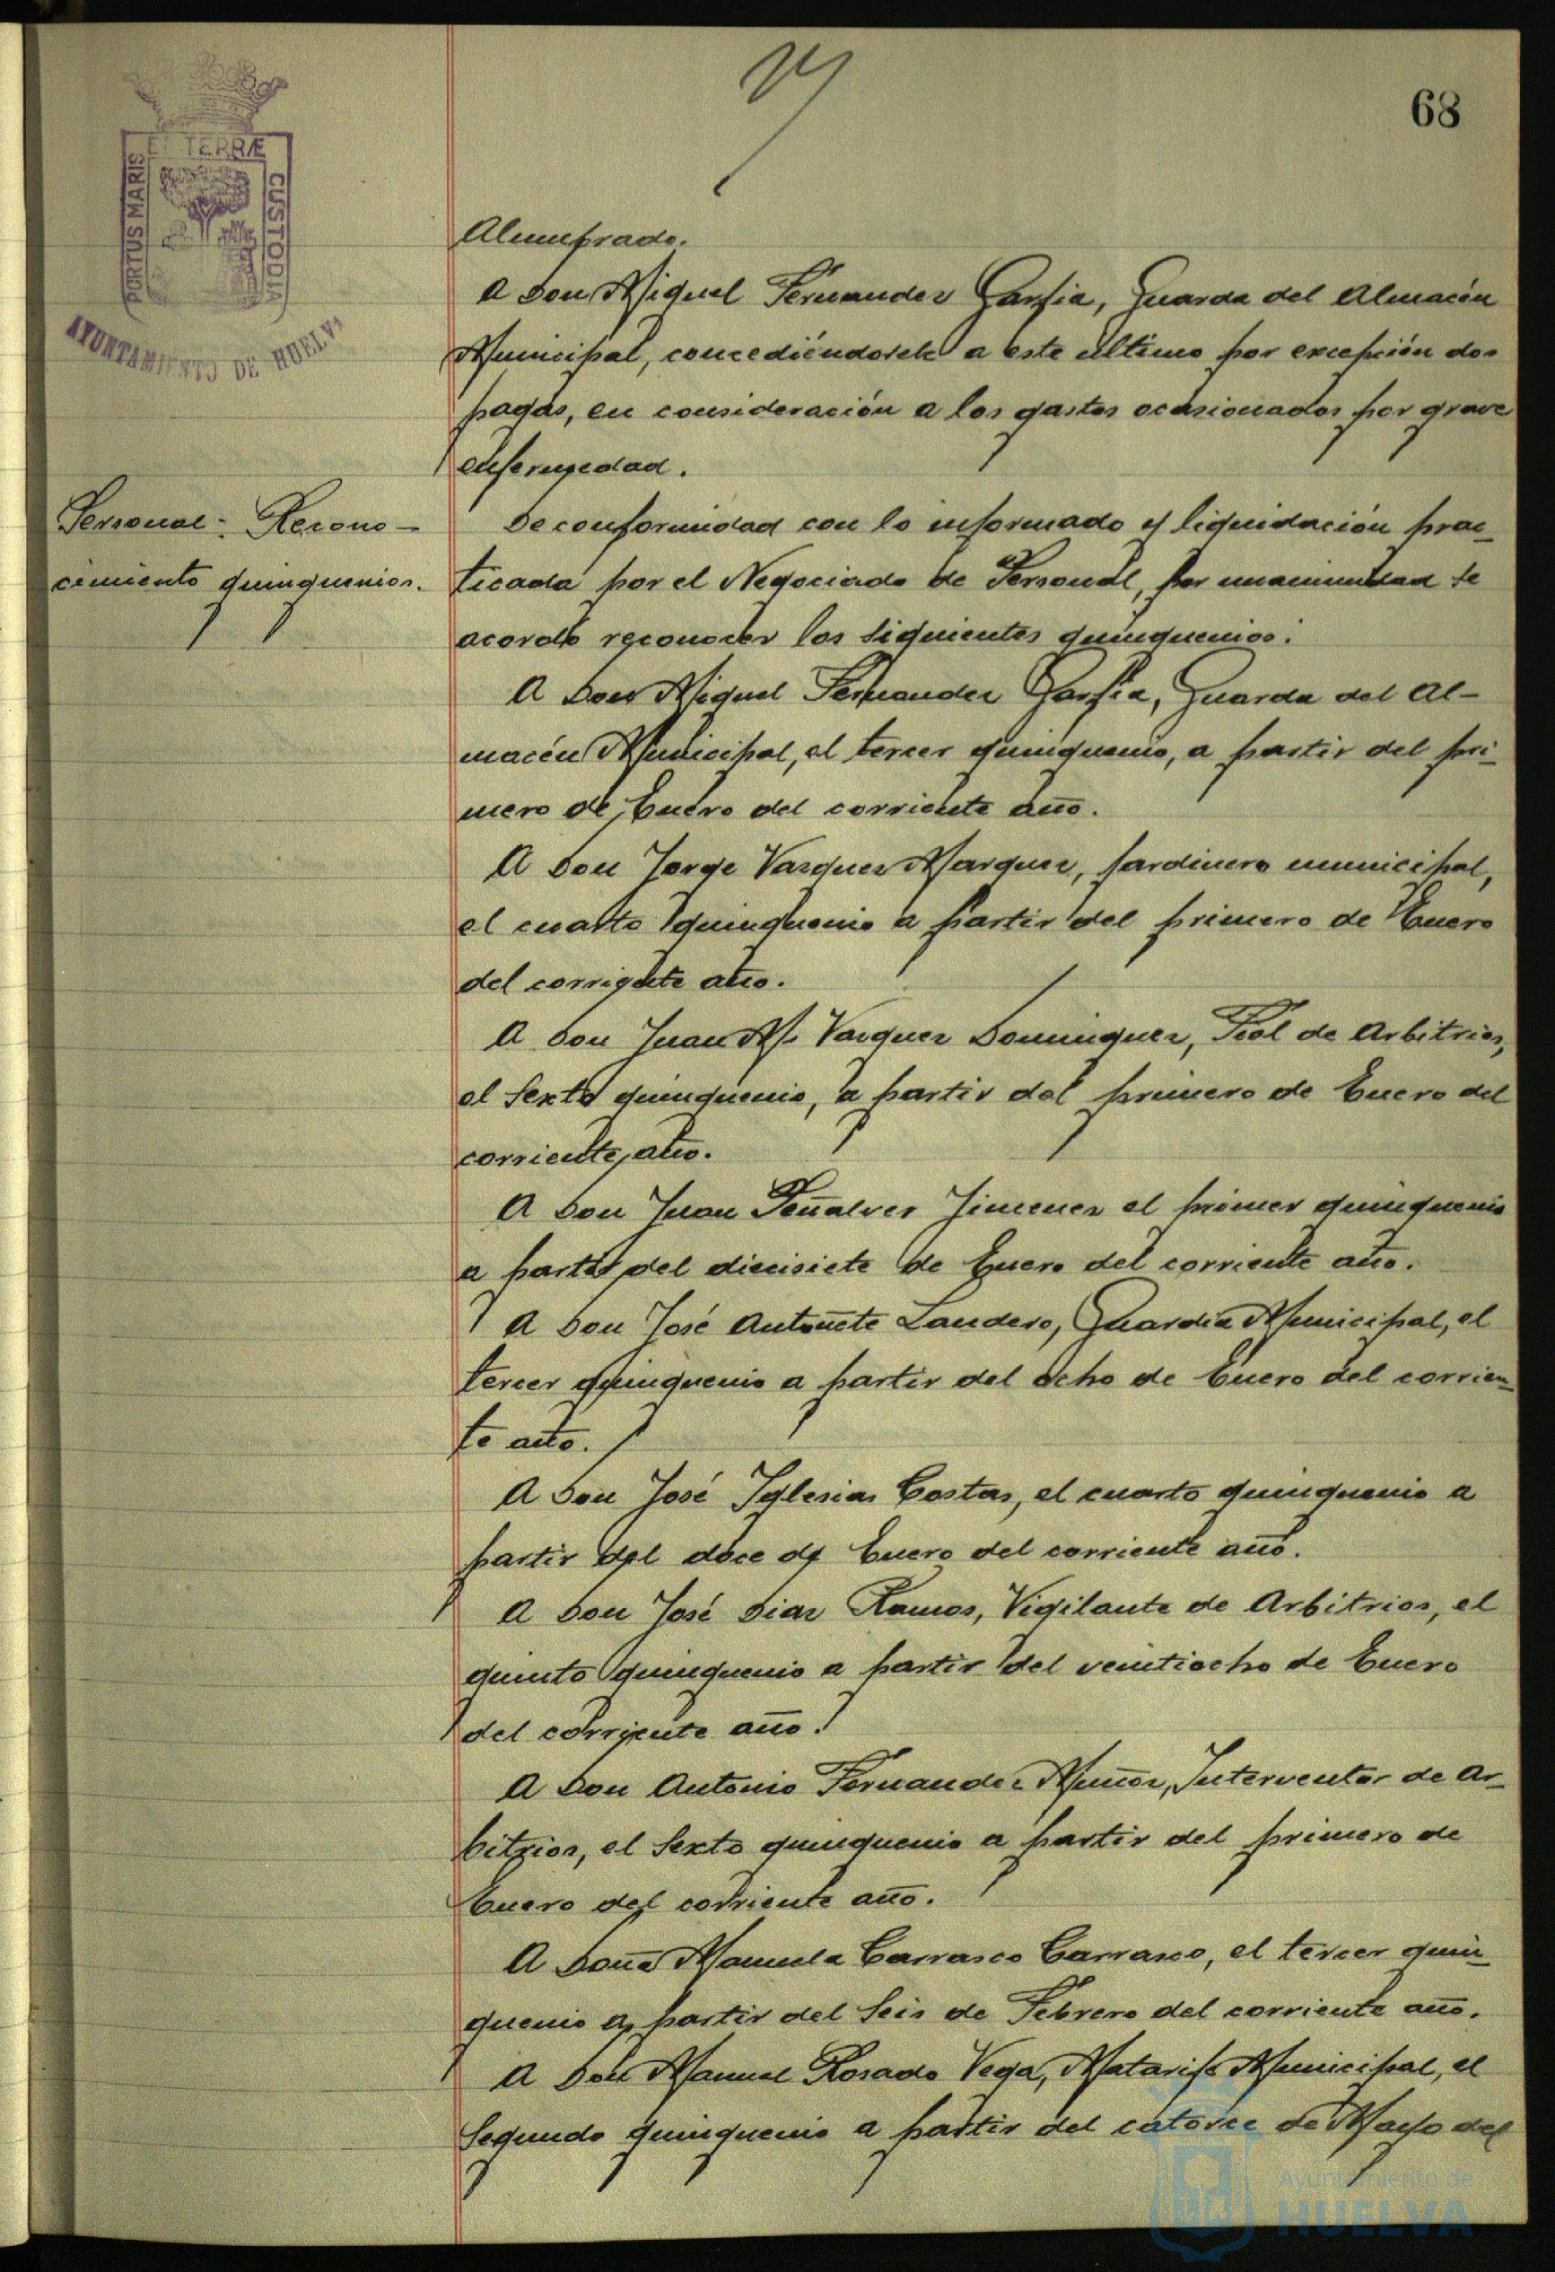 68
PORTUS MARIS
ET TERRÆ
CUSTODIA
AYUNTAMIENTO DE HUELVA
Alumbrado.
A Don Miguel Fernandez Garfia, Guarda del Almacén
Municipal, concediéndosele a este último por excepción dos
pagas, en consideración a los gastos ocasionados por grave
enfermedad.
Personal: Recono-
cimiento quinquenios.
De conformidad con lo informado y liquidación prac-
ticada por el Negociado de Personal, por unanimidad se
acordó reconocer los siguientes quinquenios:
A Don Miguel Fernandez Garfia, Guarda del Al-
macén Municipal, el tercer quinquenio, a partir del pri-
mero de Enero del corriente año.
A Don Jorge Vazquez Marquez, Jardinero municipal,
el cuarto quinquenio a partir del primero de Enero
del corriente año.
A Don Juan M. Vazquez Dominguez, Fiel de Arbitrios,
el Sexto quinquenio, a partir del primero de Enero del
corriente año.
A Don Juan Peñalver Jimenez el primer quinquenio
a partir del diecisiete de Enero del corriente año.
A Don José Antoñete Landero, Guardia Municipal, el
tercer quinquenio a partir del ocho de Enero del corrien-
te año.
A Don José Iglesias Costas, el cuarto quinquenio a
partir del doce de Enero del corriente año.
A Don José Diaz Ramos, Vigilante de Arbitrios, el
quinto quinquenio a partir del veintiocho de Enero
del corriente año.
A Don Antonio Fernandez Muñoz, Interventor de Ar-
bitrios, el Sexto quinquenio a partir del primero de
Enero del corriente año.
A Doña Manuela Carrasco Carrasco, el tercer quin-
quenio a partir del Seis de Febrero del corriente año.
A Don Manuel Rosado Vega, Matarife Municipal, el
Segundo quinquenio a partir del catorce de Mayo del
Ayuntamiento de
HUELVA